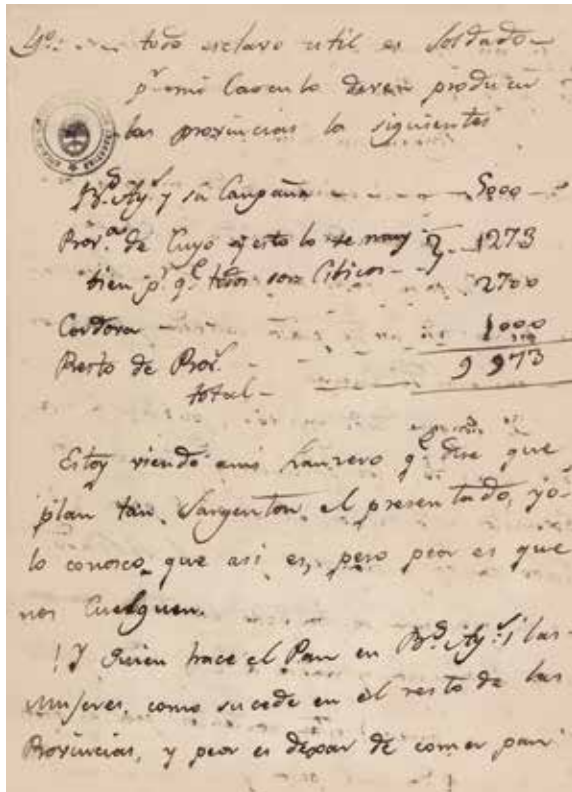 4º: todo esclavo util es Soldado
pr. mi Calculo deven producir
las provincias lo siguiente
Bs. Ays. y su Campaña 5000
Prova. de Cuyo q esto lo se muy 1273
bien pr. qe. todos son Cibicos 2700
Cordova 1000
Resto de Prov.
total 9973
Estoy viendo a mi Lanzero qe. dise que
plan tan Sargenton el presentado, yo
lo conosco que asi es, pero peor es que
nos Cuelguen.
! Y Quien hace el Pan en Bs. Ays.! las
Mujeres, como sucede en el resto de las
Provincias, y peor es dexar de comer pan